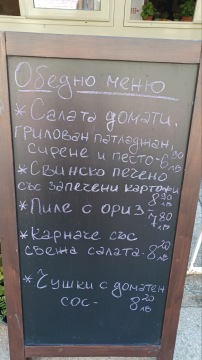 Обедно меню
*Салата домати,
грилован патладжан,
сирене и песто-6 90 лв
*Свинско печено
със запечени картофи
8 90 лв
*Пиле с ориз - 7 80 лв
*Карначе със
свежа салата- 8 20 лв
*Чушки с доматен
сос- 8 20 лв